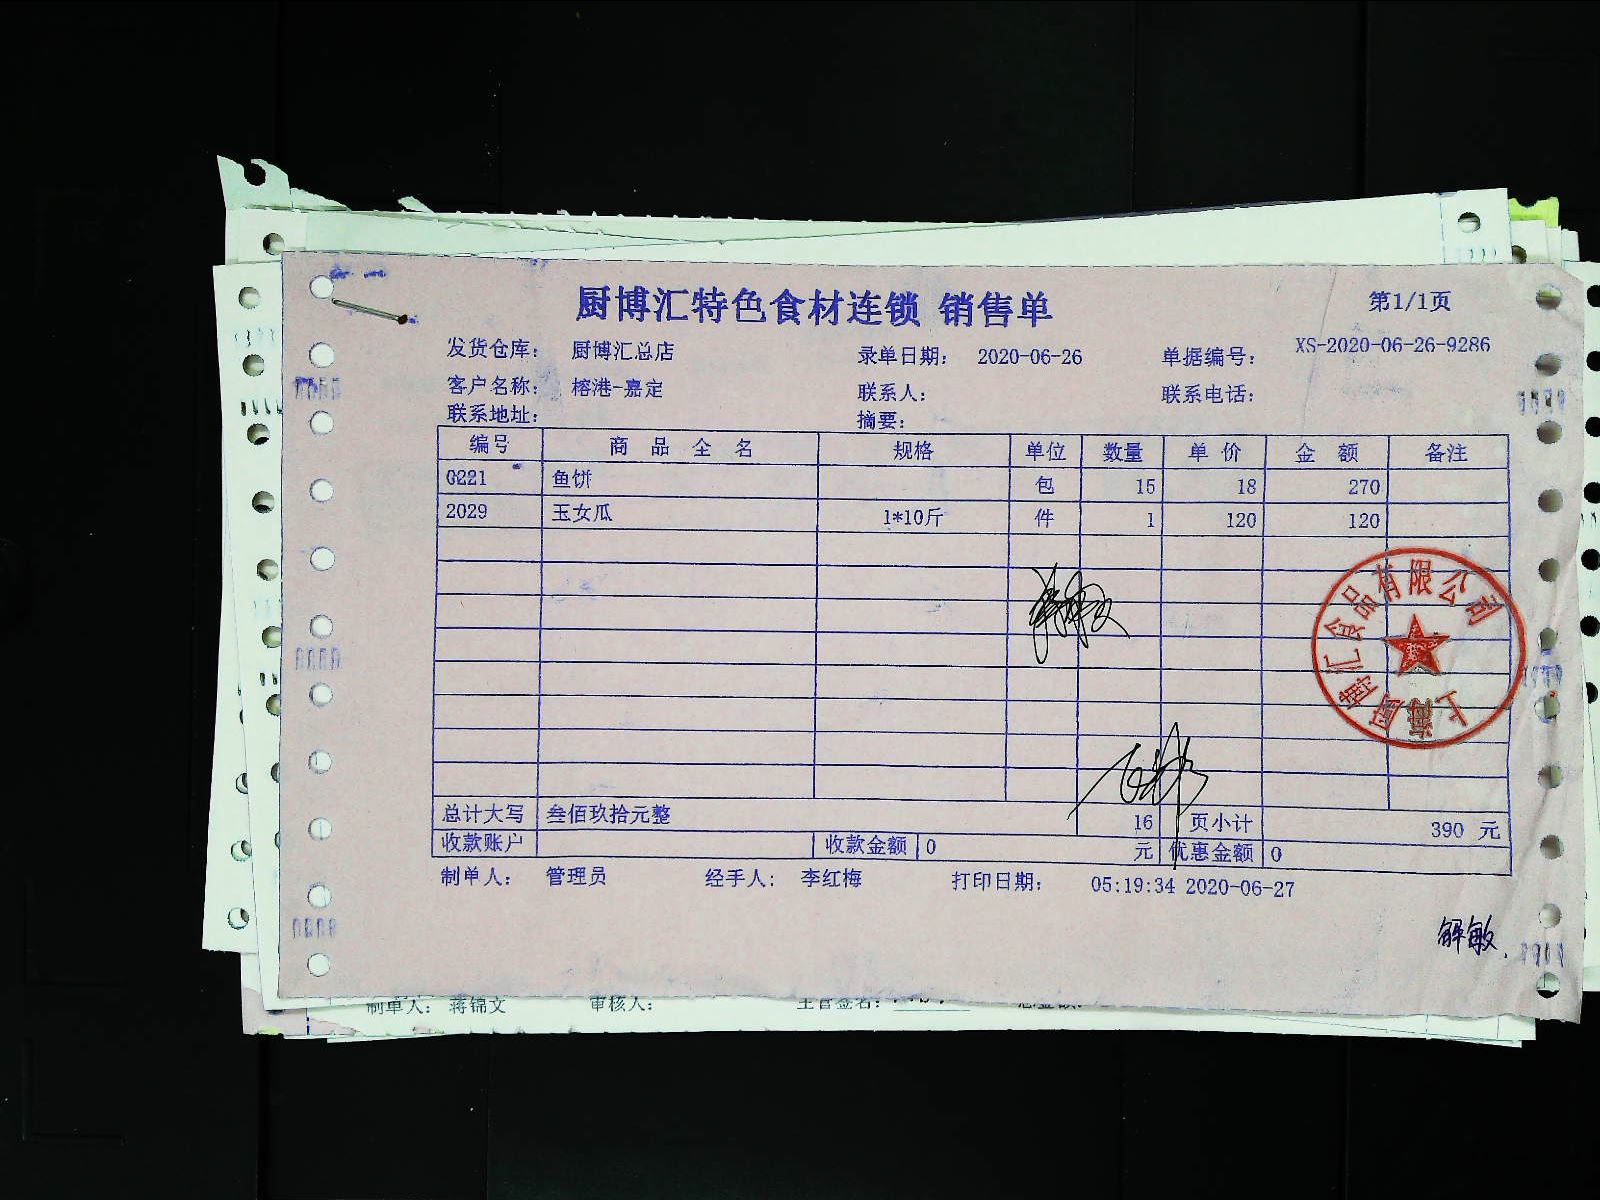 厨博汇特色食材连锁 销售单
第1/1页
发货仓库： 厨博汇总店 录单日期： 2020-06-26 单据编号： XS-2020-06-26-9286
客户名称： 榕港-嘉定 联系人： 联系电话：
联系地址： 摘要：
编号 商品全名 规格 单位 数量 单价 金额 备注
0221 鱼饼 包 15 18 270
2029 玉女瓜 1*10斤 件 1 120 120
上海厨博汇食品有限公司
总计大写 叁佰玖拾元整 16 页小计 390 元
收款账户 收款金额 0 元 优惠金额 0
制单人： 管理员 经手人： 李红梅 打印日期： 05:19:34 2020-06-27
解敏.
制单人： 蒋锦文 审核人： 主管签名：